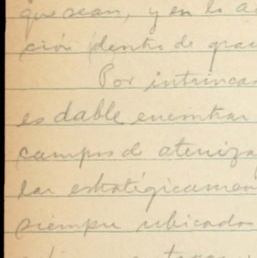 que sean, y en la a
ción dentro de gra
Por intrinca
es dable encontrar
campos d aterriza
lar estratégicamen
siempre ubicados